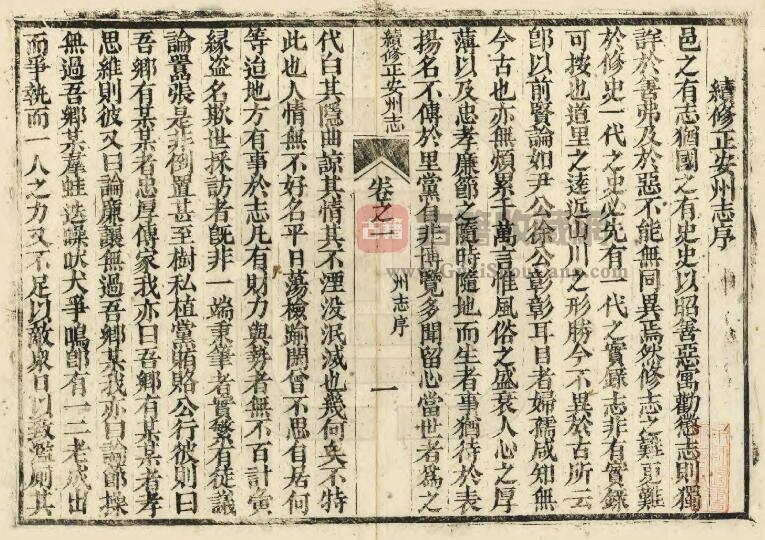 續修正安州志序
邑之有志猶國之有史史以昭善惡寓勸懲志則獨
詳於善弗及於惡不能無同異焉然修志之難更難
於修史一代之史必先有一代之實錄志非有實錄
可按也道里之遠近山川之形勝今不異於古所云
卽以前賢論如尹公徐公彰彰耳目者婦孺咸知無
今古也亦無煩累千萬言惟風俗之盛衰人心之厚
薄以及忠孝廉節之隨時隨地而生者事猶待於表
揚名不傳於里黨自非博覽多聞留心當世者爲之
續修正安州志
卷之
州志序
一
代白其隱曲諒其情其不湮没泯滅也幾何矣不特
此也人情無不好名平日蕩檢踰閑曾不思自居何
等迨地方有事於志凡有財力與勢者無不百計夤
緣盜名欺世採訪者旣非一端秉筆者實繁有徒議
論囂張是非倒置甚至樹私植黨賄賂公行彼則曰
吾鄉有某某者忠厚傳家我亦曰吾鄉有某某者孝
思維則彼又曰論廉讓無過吾鄉某我亦曰論節操
無過吾鄉某羣蛙迭噪吠犬爭鳴卽有一二老成出
而爭執而一人之力又不足以敵衆口以致濫厠其
古籍
www.GuJiShouCang.com